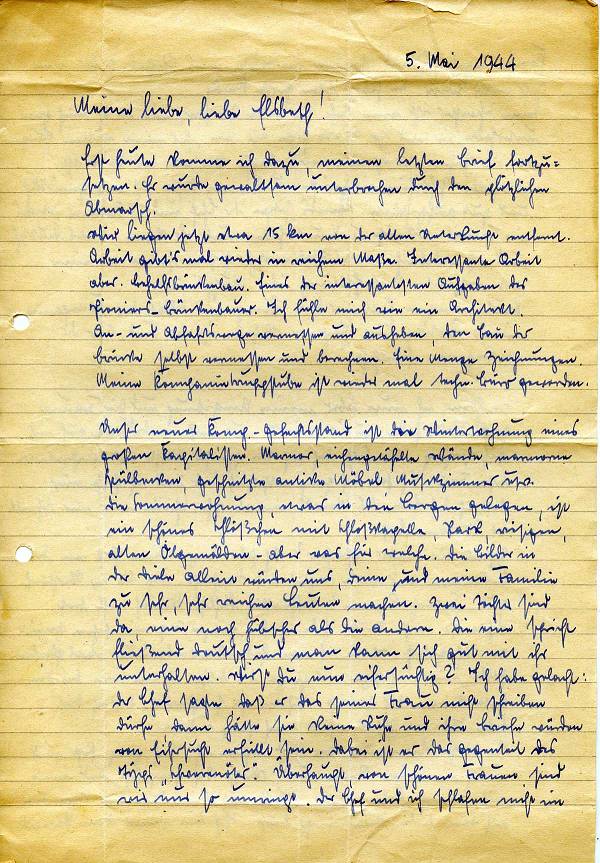 5. Mai 1944
Meine liebe, liebe Elsbeth!
Erst heute komme ich dazu, meinen letzten Brief fortzu=
setzen. Er wurde gewaltsam unterbrochen durch den plötzlichen
Abmarsch.
Wir liegen jetzt etwa 15 km von der alten Unterkunft entfernt.
Arbeit gibt's mal wieder in reichem Maße. Interessante Arbeit
aber. Behelfsbrückenbau. Eines der interessantesten Aufgaben des
Pioniers - Brückenbauer. Ich fühle mich wie ein Architekt.
An- und Abfahrtswege vermessen und ausheben, den Bau der
Brücke selbst vermessen und berechnen. Eine Menge Zeichnungen.
Meine Kompanietruppstube ist wieder mal techn. Büro geworden.
Unser neuer Komp.-Gefechtsstand ist die Winterwohnung eines
großen Kapitalisten. Marmor, eichengetäfelte Wände, marmorne
geschnitzte antike Möbel Musikzimmer usw.
Die Sommerwohnung, etwas in den Bergen gelegen, ist
ein schönes Schlößchen mit Schloßkapelle, Park, riesigen,
alten Ölgemälden - aber was für welche. Die Bilder in
der Diele allein würden uns, Deine und meine Familie
zu sehr, sehr reichen Leuten machen. Zwei Töchter sind
da, eine noch hübscher als die andere. Die eine spricht
fließend deutsch und man kann sich gut mit ihr
unterhalten. Wirst Du nun eifersüchtig? Ich habe gelacht:
der Chef sagte, daß er das seiner Frau nicht schreiben
dürfe, dann hätte sie keine Ruhe und ihre Briefe würden
von Eifersucht erfüllt sein. Dabei ist er das Gegenteil des
Typs „Schwerenöter". Überhaupt von schönen Frauen sind
wir nur so umringt. Der Chef und ich schlafen nicht im